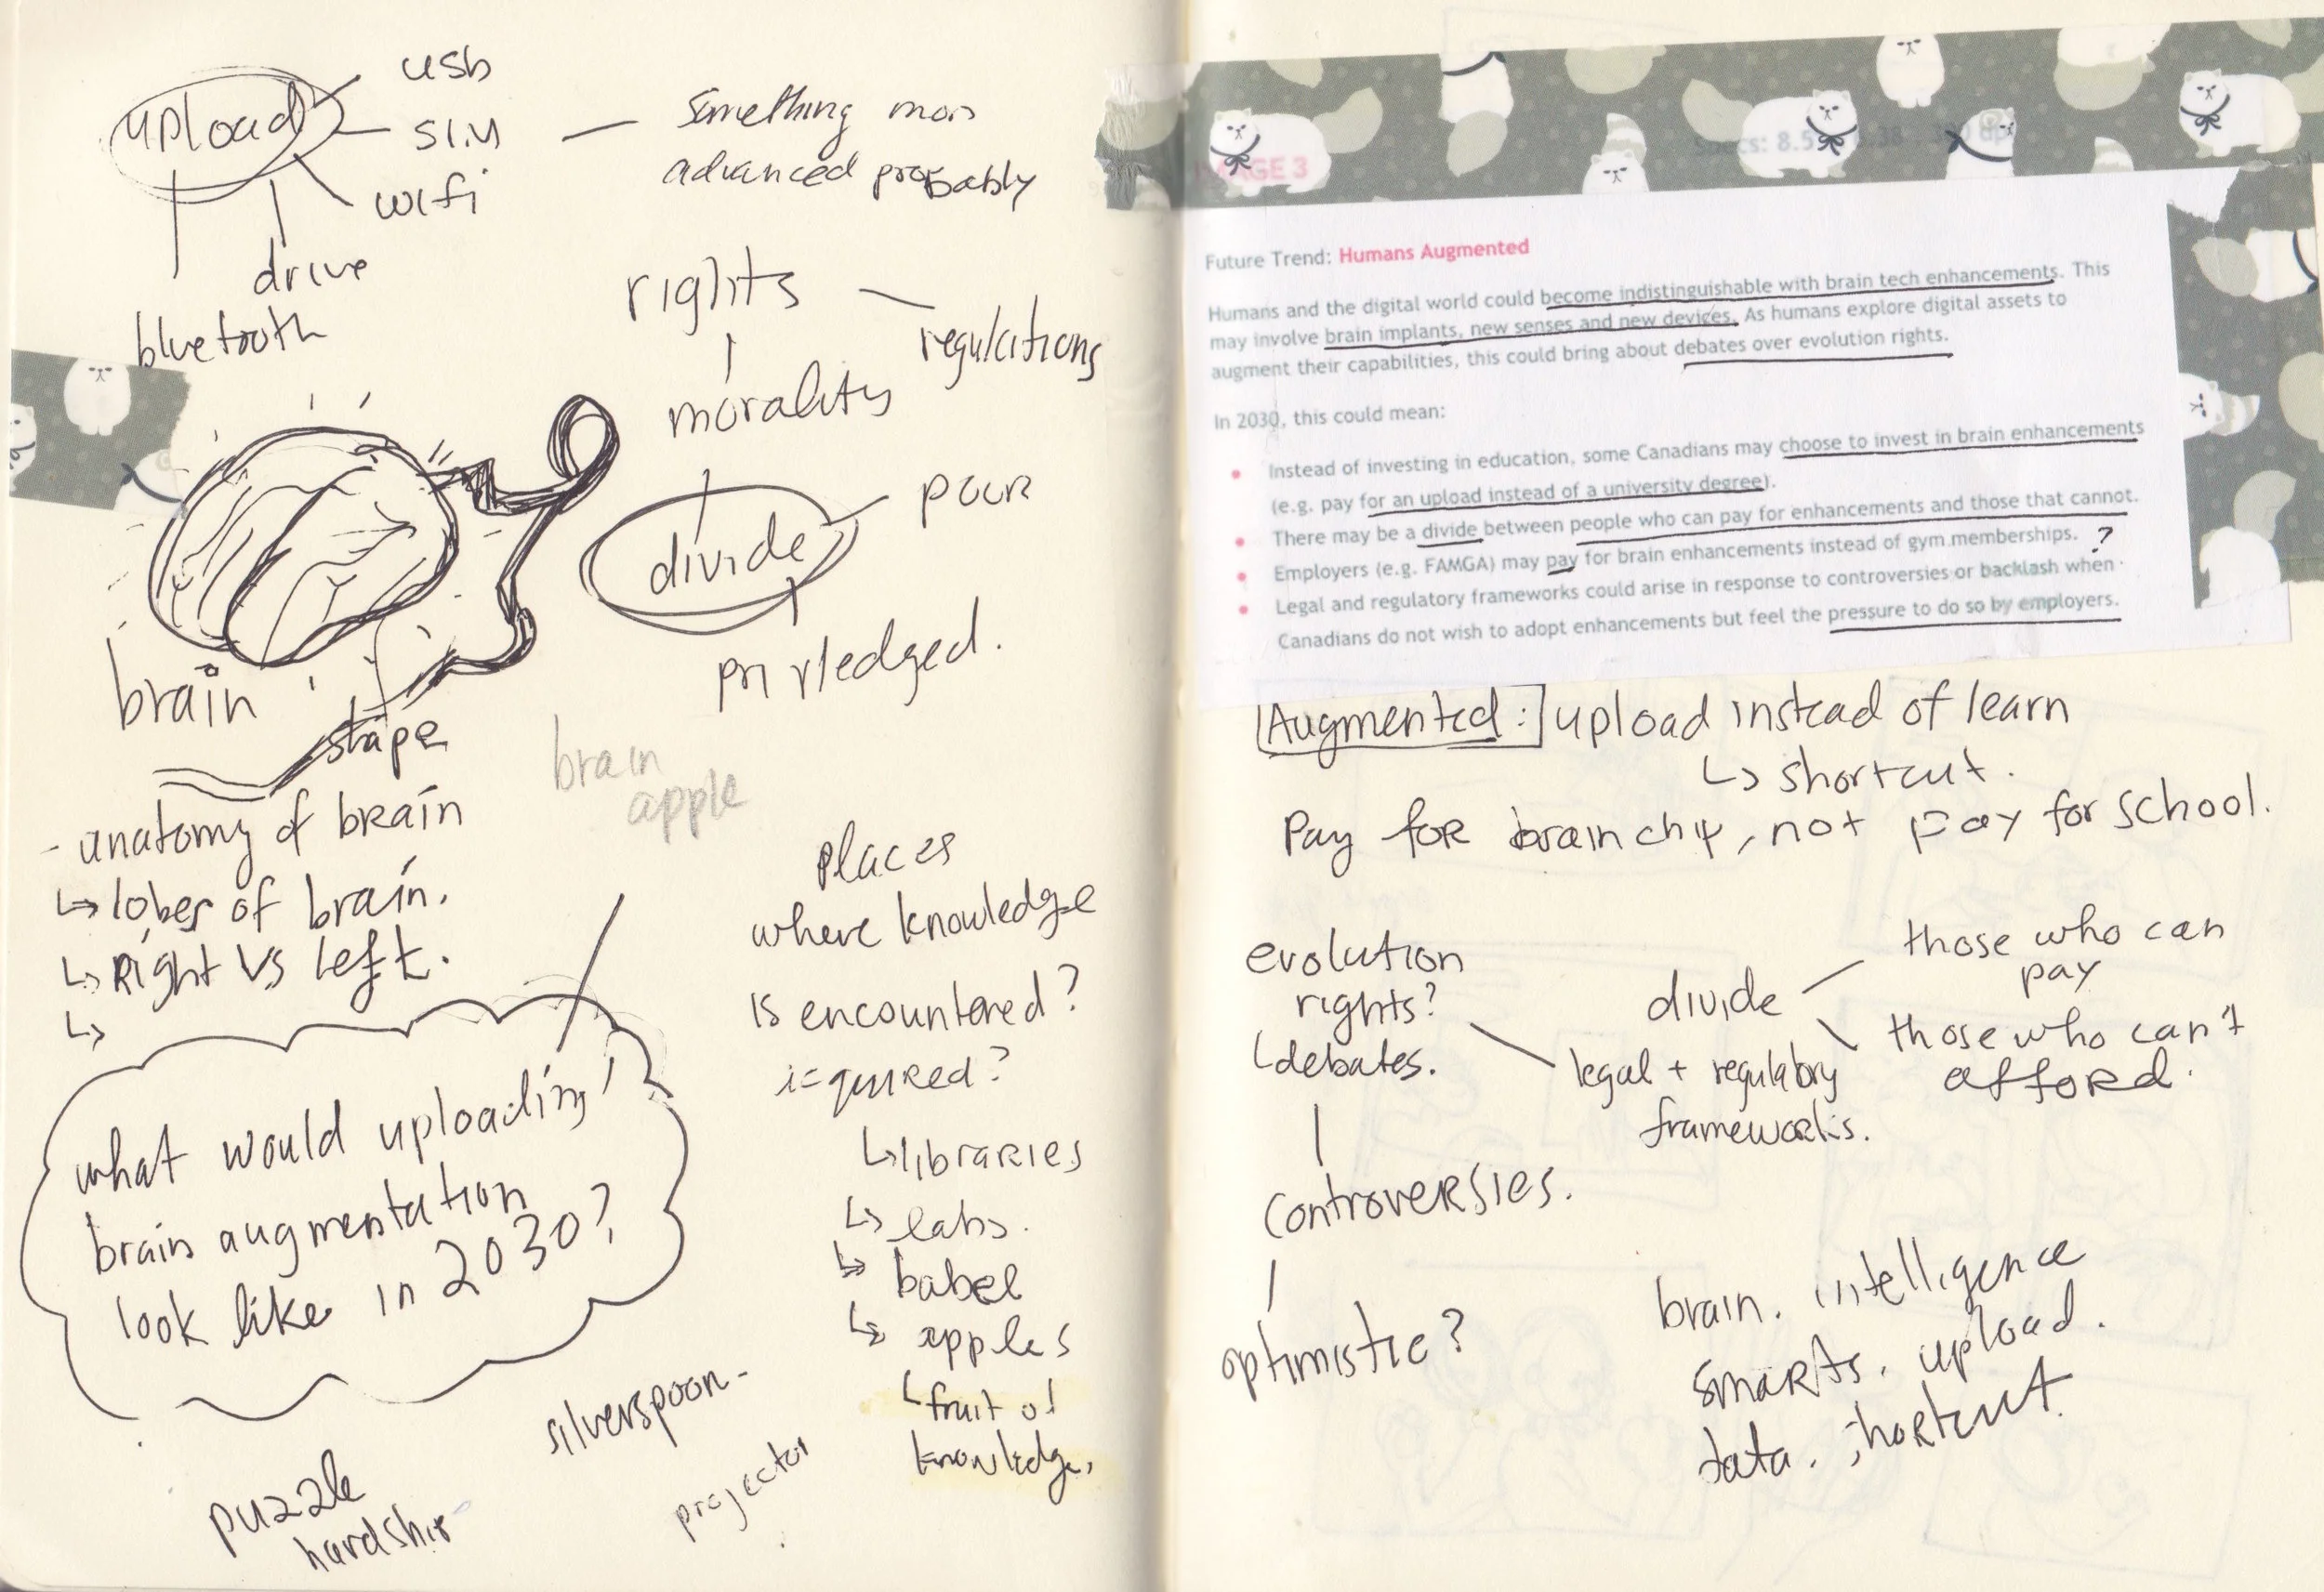 upload
usb
SIM
wifi
drive
bluetooth
something more
advanced probably
rights
regulations
morality
divide
poor
priviledged.
brain
shape
brain
apple
- anatomy of brain
↳ lobes of brain.
↳ Right vs left.
↳
what would uploading/
brain augmentation
look like in 2030?
places
where knowledge
is encountered?
↳ libraries
↳ labs.
↳ babel
↳ apples
↳ fruit of
knowledge.
silverspoon-
projector
puzzle
hardship
IMAGE 3
Specs: 8.5
Future Trend: Humans Augmented
Humans and the digital world could become indistinguishable with brain tech enhancements. This
may involve brain implants, new senses and new devices. As humans explore digital assets to
augment their capabilities, this could bring about debates over evolution rights.
In 2030, this could mean:
• Instead of investing in education, some Canadians may choose to invest in brain enhancements
(e.g. pay for an upload instead of a university degree).
• There may be a divide between people who can pay for enhancements and those that cannot.
• Employers (e.g. FAMGA) may pay for brain enhancements instead of gym memberships. ?
• Legal and regulatory frameworks could arise in response to controversies or backlash when
Canadians do not wish to adopt enhancements but feel the pressure to do so by employers.
Augmented: upload instead of learn
↳ shortcut.
Pay for brain chip, not pay for school.
evolution
rights?
debates.
divide
those who can
pay
those who can't
afford.
legal + regulatory
frameworks.
controversies.
optimistic?
brain. intelligence
smarts. upload.
data. shortcut.